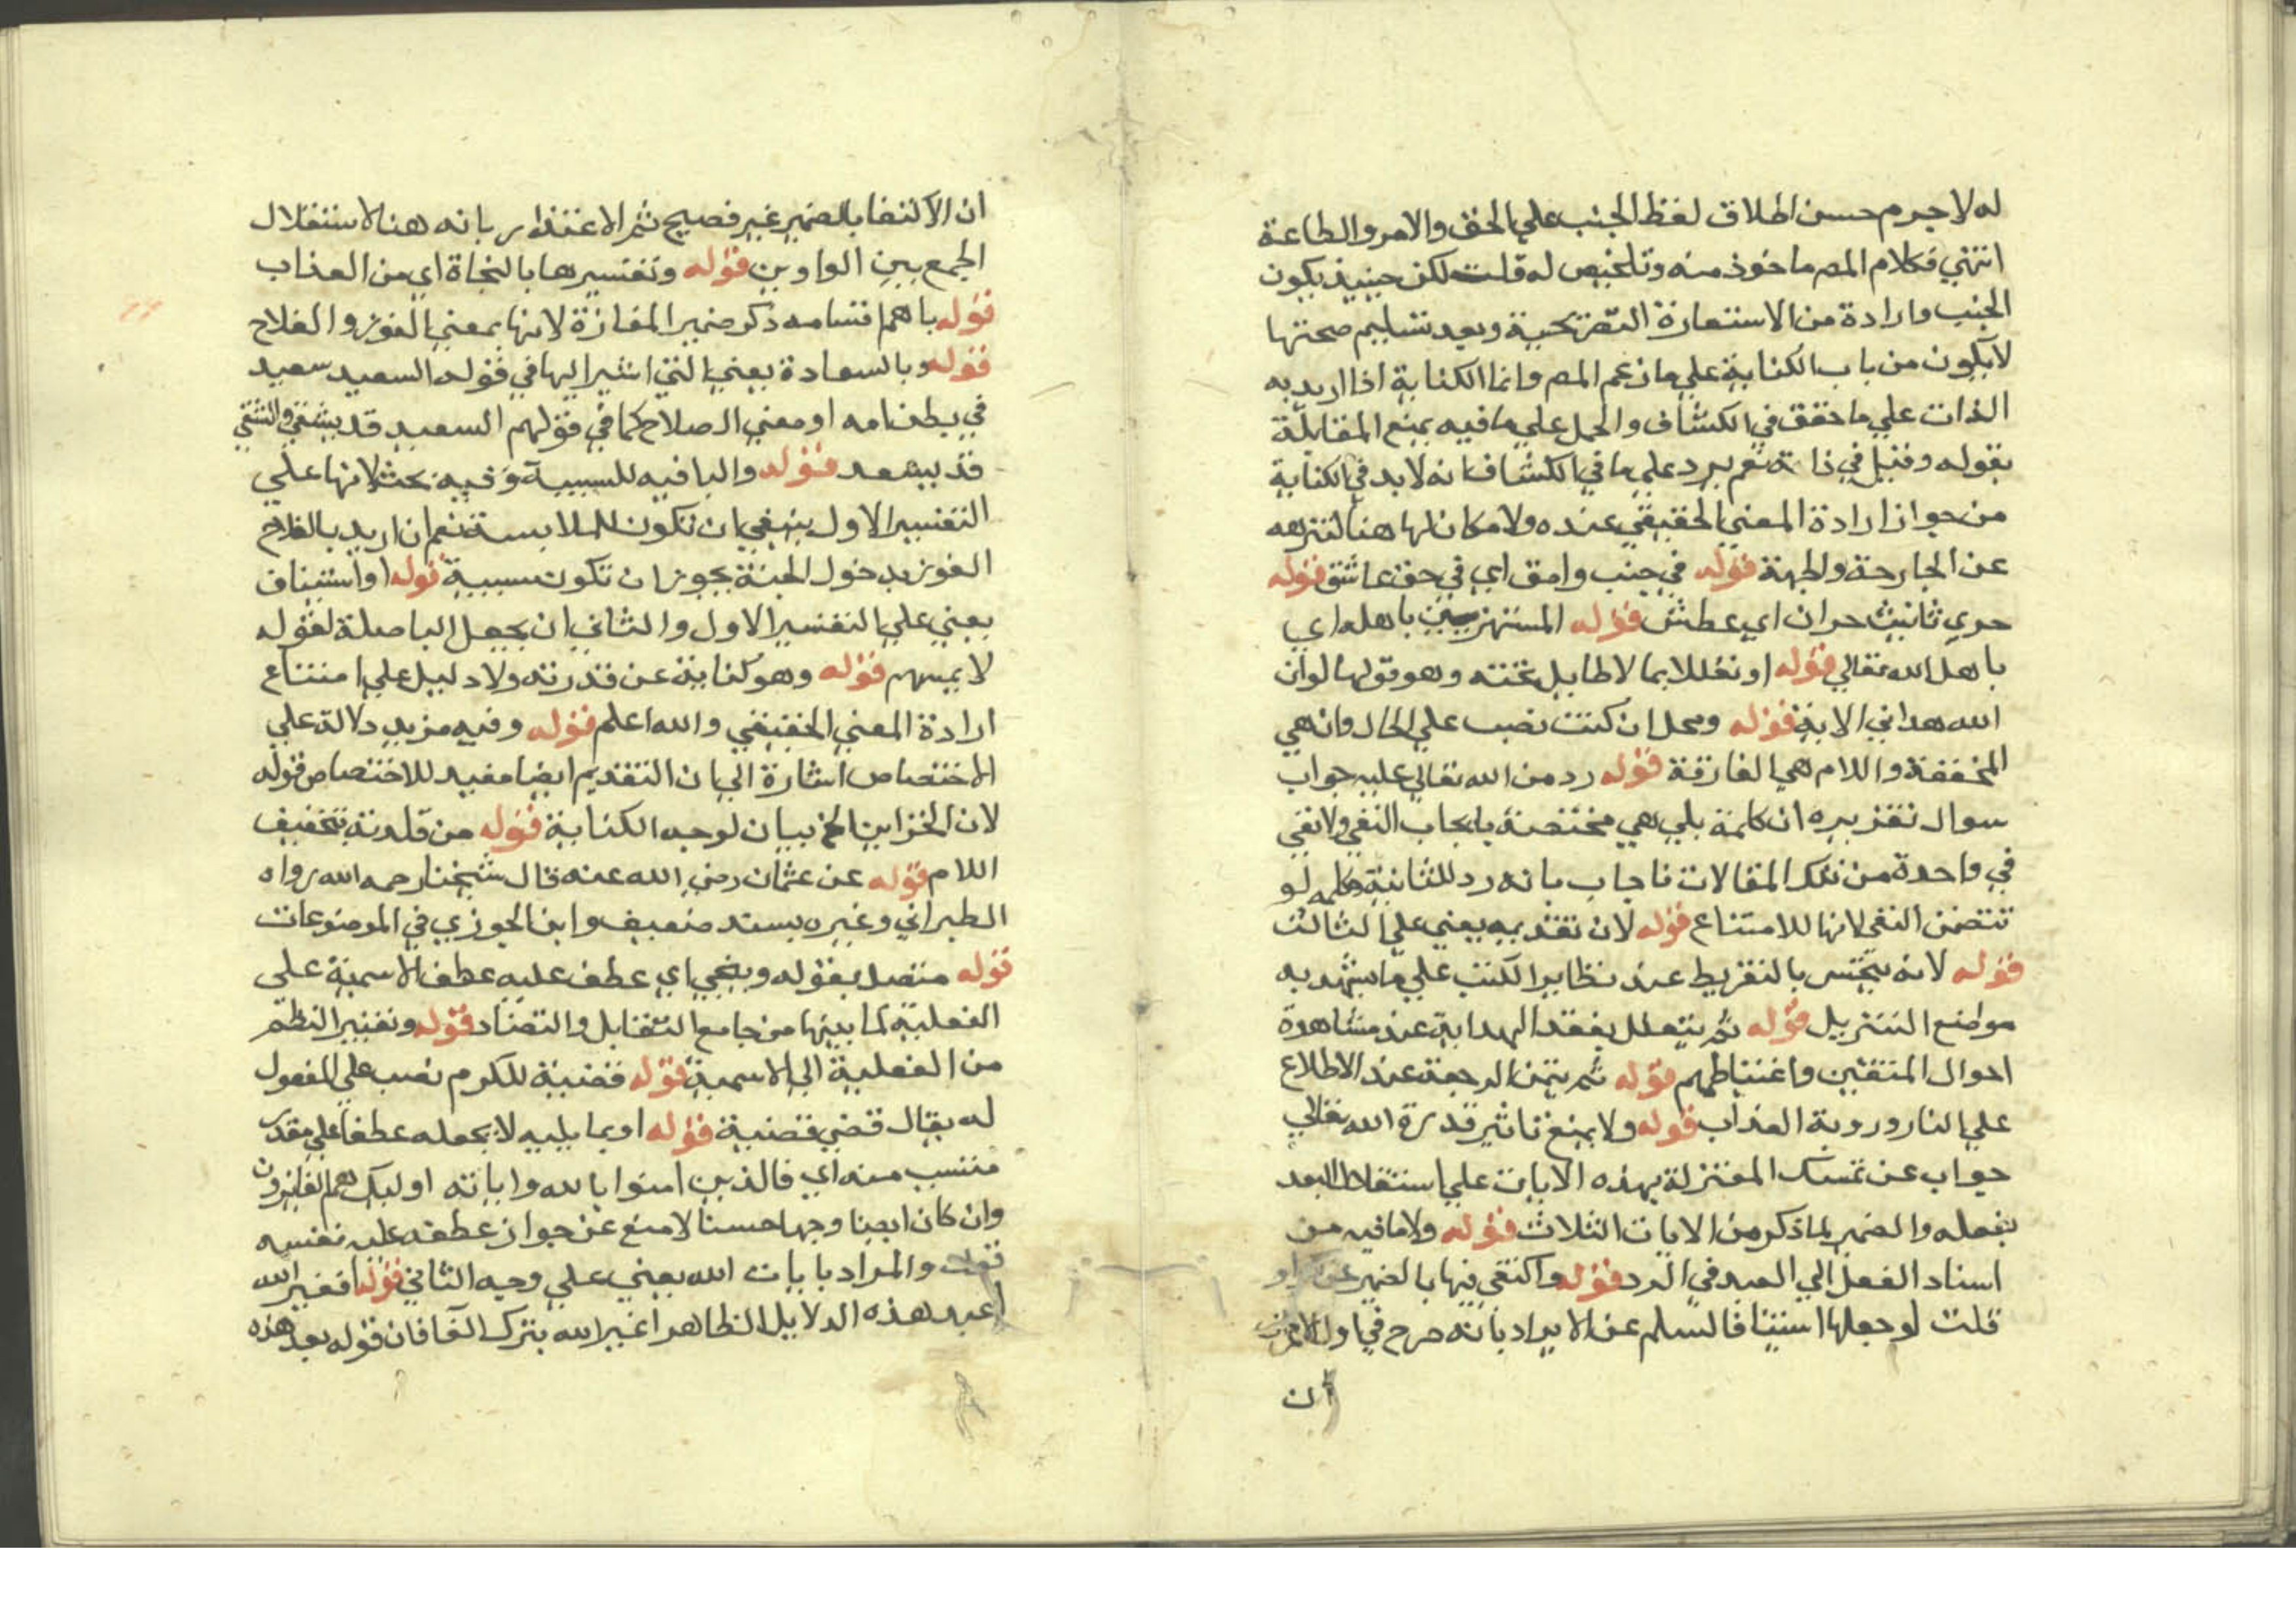 له لا جرم حسن اطلاق لفظ الجنب علي الحق والامر والطاعة
انتهي فكلام المص ماخوذ منه وتلخيص له قلت لكن حينيذ يكون
الجنب وارادة من الاستعارة التصريحية وبعد تسليم صحتها
لا يكون من باب الكناية علي ما زعم المص وانما الكناية اذا اريد به
الذات علي ما حقق في الكشاف والحمل علي ما فيه يمنع المقابلة
بقوله وقيل في ذاته نعم يرد علي ما في الكشاف انه لا بد في الكناية
من جواز ارادة المعني الحقيقي عنده ولا مكان لها هنا لتنزهه
عن الجارحة والجهة قوله في جنب وامق اي في حق عاشق قوله
حري تانيث حران اي عطش قوله المستهزيين باهله اي
باهل الله تعالي قوله او تعللا بما لا طايل تحته وهو قولها لو ان
الله هداني الاية قوله ومحل ان كنت نصب علي الحال وان هي
المخففة واللام هي الفارقة قوله رد من الله تعالي عليه جواب
سوال تقريره ان كلمة بلي هي مختصة بايجاب النفي ولا نفي
في واحدة من تلك المقالات فاجاب بانه رد للثانية وكلمه لو
تتضمن النفي لانها للامتناع قوله لان تقديمه يعني علي الثالث
قوله لانه يتحسر بالتفريط عند تطاير الكتب علي ما يشهد به
مواضع التنزيل قوله ثم يتعلل بفقد الهداية عند مشاهدة
احوال المتقين واغتباطهم قوله ثم يتمن الرجعة عند الاطلاع
علي النار وروية العذاب قوله ولا يمنع تاثير قدرة الله تعالي
جواب عن تمسك المعتزلة بهذه الايات علي استقلال العبد
بفعله والضمير لما ذكر من الايات الثلاث قوله ولا ما فيه من
اسناد الفعل الي العبد في الرد قوله واكتفي فيها بالضمير عن الواو
قلت لو جعلها استينافا لسلم عن الايراد بانه صرح في اول الاعراف
ان
ان الاكتفا بالضمير غير فصيح ثم الاعتذار بانه هنا لاستثقال
الجمع بين الواوين قوله وتفسيرها بالنجاة اي من العذاب
قوله باهم اقسامه ذكر ضمير المفازة لانها بمعني الفوز والفلاح
قوله وبالسعادة يعني التي اشير اليها في قوله السعيد سعيد
في بطن امه او معني الصلاح كما في قولهم السعيد قد يشقي والشقي
قد يسعد قوله والبا فيه للسببية وفيه بحث لانها علي
التفسير الاول ينبغي ان تكون للملابسة نعم ان اريد بالفلاح
الفوز بدخول الجنة يجوز ان تكون سببية قوله او استيناف
يعني علي التفسير الاول والثاني ان يجعل الباصلة لقوله
لا يمسهم قوله وهو كناية عن قدرته ولا دليل علي امتناع
ارادة المعني الحقيقي والله اعلم قوله وفيه مزيد دلالة علي
الاختصاص اشارة الي ان التقديم ايضا مفيد للاختصاص قوله
لان الخزاين الخ بيان لوجه الكناية قوله من قلدته بتخفيف
اللام قوله عن عثمان رضي الله عنه قال شيخنا رحمه الله رواه
الطبراني وغيره بسند ضعيف وابن الجوزي في الموضوعات
قوله متصل بقوله وينجي اي عطف عليه عطف الاسمية علي
الفعلية لما بينها من جامع التقابل والتضاد قوله وتغيير النظم
من الفعلية الي الاسمية قوله قضية للكرم نصب علي المفعول
له يقال قضي قضية قوله او بما يليه لا يجعله عطفا علي مقدر
منتسب منه اي فالذين امنوا بالله واياته اوليك هم الفايزون
وان كان ايضا وجها حسنا لا منع عن جواز عطفه عليه نفسه
قوله والمراد بايات الله يعني علي وجيه الثاني قوله افغير الله
اعبد هذه الدلايل الظاهر اغير الله بترك الفا فان قوله بعد هذه